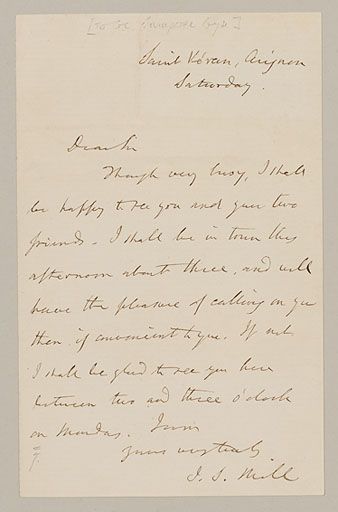 Saint Véran, Avignon
Saturday.
Dear Sir
Though very busy, I shall
be happy to see you and your two
friends. I shall be in town this
afternoon about three, and will
have the pleasure of calling on you
then if convenient to you. If not
I shall be glad to see you here
between two and three o'clock
on Monday. I am
yours very truly
J. S. Mill